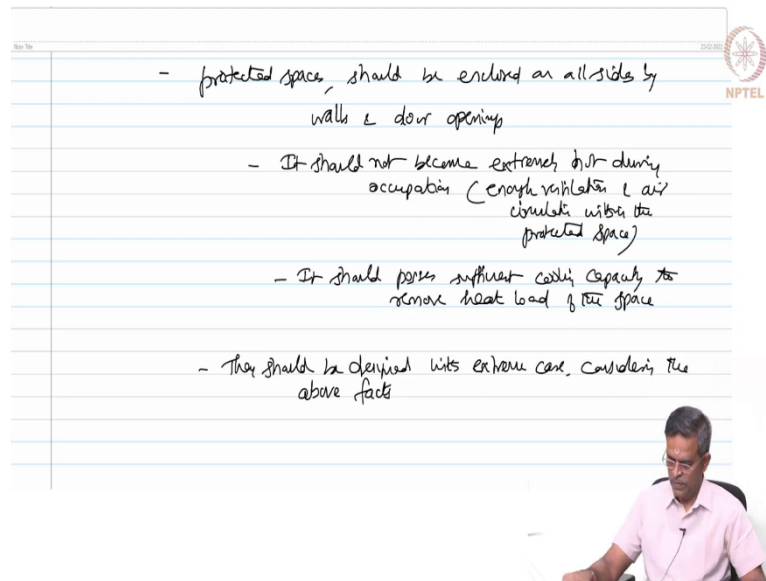 Note Title
23-02-2022
NPTEL
- protected spaces, should be enclosed on all sides by
walls & door openings
- It should not become extremely hot during
occupation (enough ventilation & air
circulation within the
protected space)
- It should posses sufficient cooling capacity to
remove heat load of the space
- They should be designed with extreme care, considering the
above facts